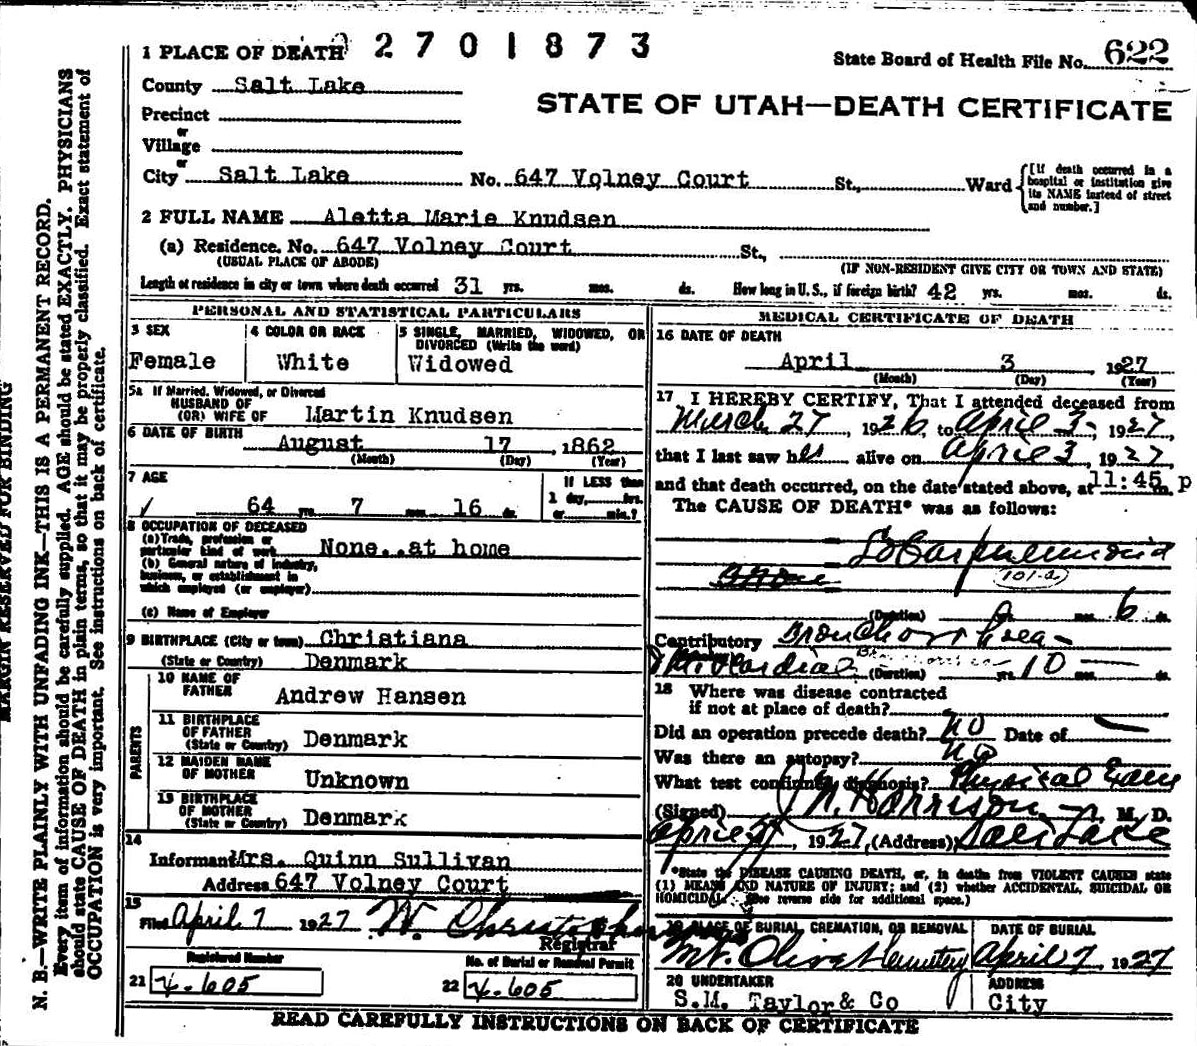 2701873
1 PLACE OF DEATH
State Board of Health File No. 622
County Salt Lake
STATE OF UTAH—DEATH CERTIFICATE
Precinct
or
Village
or
City Salt Lake No. 647 Volney Court St., Ward
[If death occurred in a hospital or institution give its NAME instead of street and number.]
2 FULL NAME Aletta Marie Knudsen
(a) Residence. No. 647 Volney Court St.,
(USUAL PLACE OF ABODE) (IF NON-RESIDENT GIVE CITY OR TOWN AND STATE)
Length of residence in city or town where death occurred 31 yrs. mos. ds. How long in U. S., if foreign birth? 42 yrs. mos. ds.
PERSONAL AND STATISTICAL PARTICULARS
3 SEX
Female
4 COLOR OR RACE
White
5 SINGLE, MARRIED, WIDOWED, OR
DIVORCED (Write the word)
Widowed
5a If Married, Widowed, or Divorced
HUSBAND OF
(OR) WIFE OF Martin Knudsen
6 DATE OF BIRTH
August 17, 1862
(Month) (Day) (Year)
7 AGE
64 yrs. 7 mos. 16 ds.
If LESS than
1 day, hrs.
or min.?
8 OCCUPATION OF DECEASED
(a) Trade, profession or
particular kind of work None..at home
(b) General nature of industry,
business, or establishment in
which employed (or employer)
(c) Name of Employer
9 BIRTHPLACE (City or town) Christiana
(State or Country) Denmark
PARENTS
10 NAME OF
FATHER Andrew Hansen
11 BIRTHPLACE
OF FATHER
(State or Country) Denmark
12 MAIDEN NAME
OF MOTHER Unknown
13 BIRTHPLACE
OF MOTHER
(State or Country) Denmark
14
Informant Mrs. Quinn Sullivan
Address 647 Volney Court
15
Filed April 7 1927 W. Christopherson
Registrar
Registered Number
21 4.605
No. of Burial or Removal Permit
22 4.605
MEDICAL CERTIFICATE OF DEATH
16 DATE OF DEATH
April 3 1927
(Month) (Day) (Year)
17 I HEREBY CERTIFY, That I attended deceased from
March 27, 1926, to April 3, 1927,
that I last saw her alive on April 3, 1927
and that death occurred, on the date stated above, at 11:45 p m.
The CAUSE OF DEATH* was as follows:
Lobar pneumonia
101-a
(Duration) mos. 6 ds.
Contributory Bronchorrhea
Myocardial
(Duration) yrs. 10 mos. ds.
18 Where was disease contracted
if not at place of death?
Did an operation precede death? No Date of
Was there an autopsy? No
What test confirmed diagnosis? Physical Exam
(Signed) Harrison, M. D.
April, 1927, (Address) Salt Lake
*State the DISEASE CAUSING DEATH, or, in deaths from VIOLENT CAUSES state
(1) MEANS AND NATURE OF INJURY; and (2) whether ACCIDENTAL, SUICIDAL OR
HOMICIDAL. (See reverse side for additional space.)
19 PLACE OF BURIAL, CREMATION, OR REMOVAL
Mt. Olivet Cemetery
DATE OF BURIAL
April 7, 1927
20 UNDERTAKER
S.M. Taylor & Co
ADDRESS
City
READ CAREFULLY INSTRUCTIONS ON BACK OF CERTIFICATE
MARGIN RESERVED FOR BINDING
N. B.—WRITE PLAINLY WITH UNFADING INK—THIS IS A PERMANENT RECORD.
Every item of information should be carefully supplied. AGE should be stated EXACTLY. PHYSICIANS
should state CAUSE OF DEATH in plain terms, so that it may be properly classified. Exact statement of
OCCUPATION is very important. See instructions on back of certificate.